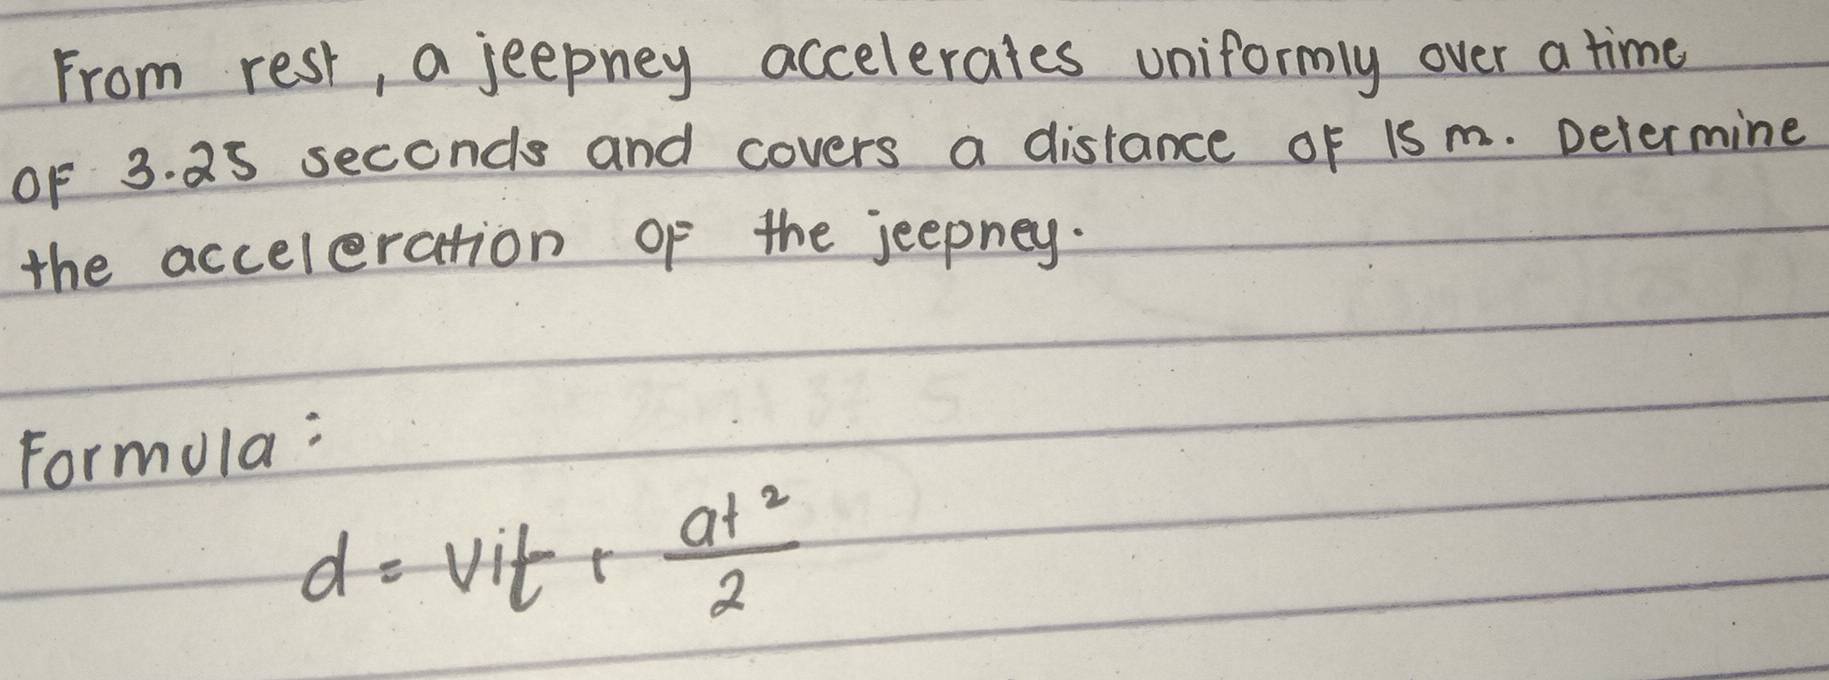 From rest, a jeepney accelerates uniformly over a time
of 3.25 seconds and covers a distance of 15 m. Determine
the acceleration of the jeepney.
Formula:
d = vit + at²/2